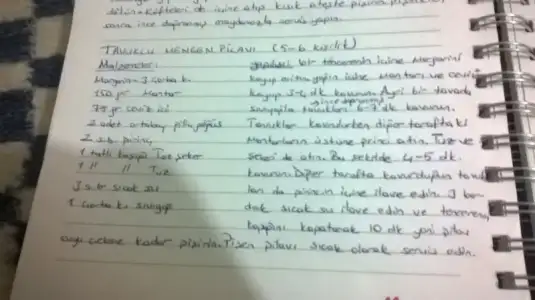 dökün. Köfteleri de içine atıp kısık ateşte pişirin.
sonra ince dereotu serperek servis yapın.
TAVUKLU MENGEN PİLAVI (5-6 kişilik)
Malzemeler: bir tencerenin içine Margarini
Margarin - 3 çorba k. koyup eritin içine Mantarı ve cevizi
150 gr Mantar koyup 3-4 dk kavurun. Ayrı bir tavada
ince doğranmış
75 gr ceviz içi sıvıyağla tavukları 6-7 dk kavurun.
2 adet ortaboy piliç göğüs Tavuklar kavrulurken diğer taraftaki
2 s.b. pirinç Mantarların üstüne pirinci atın. Tuz ve
1 tatlı kaşığı Toz şeker şekeri de atın. Bu şekilde 4-5 dk.
1 " " Tuz kavurun. Diğer tarafta kavurduğun tavuk
3 s.b sıcak su ları da pirincin içine ilave edin. 3 bar
1 çorba k. sıvıyağ dak sıcak su ilave edin ve tencerenin
kapağını kapatarak 10 dk yani pilav
suyu çekene kadar pişirin. Pişen pilavı sıcak olarak servis edin.